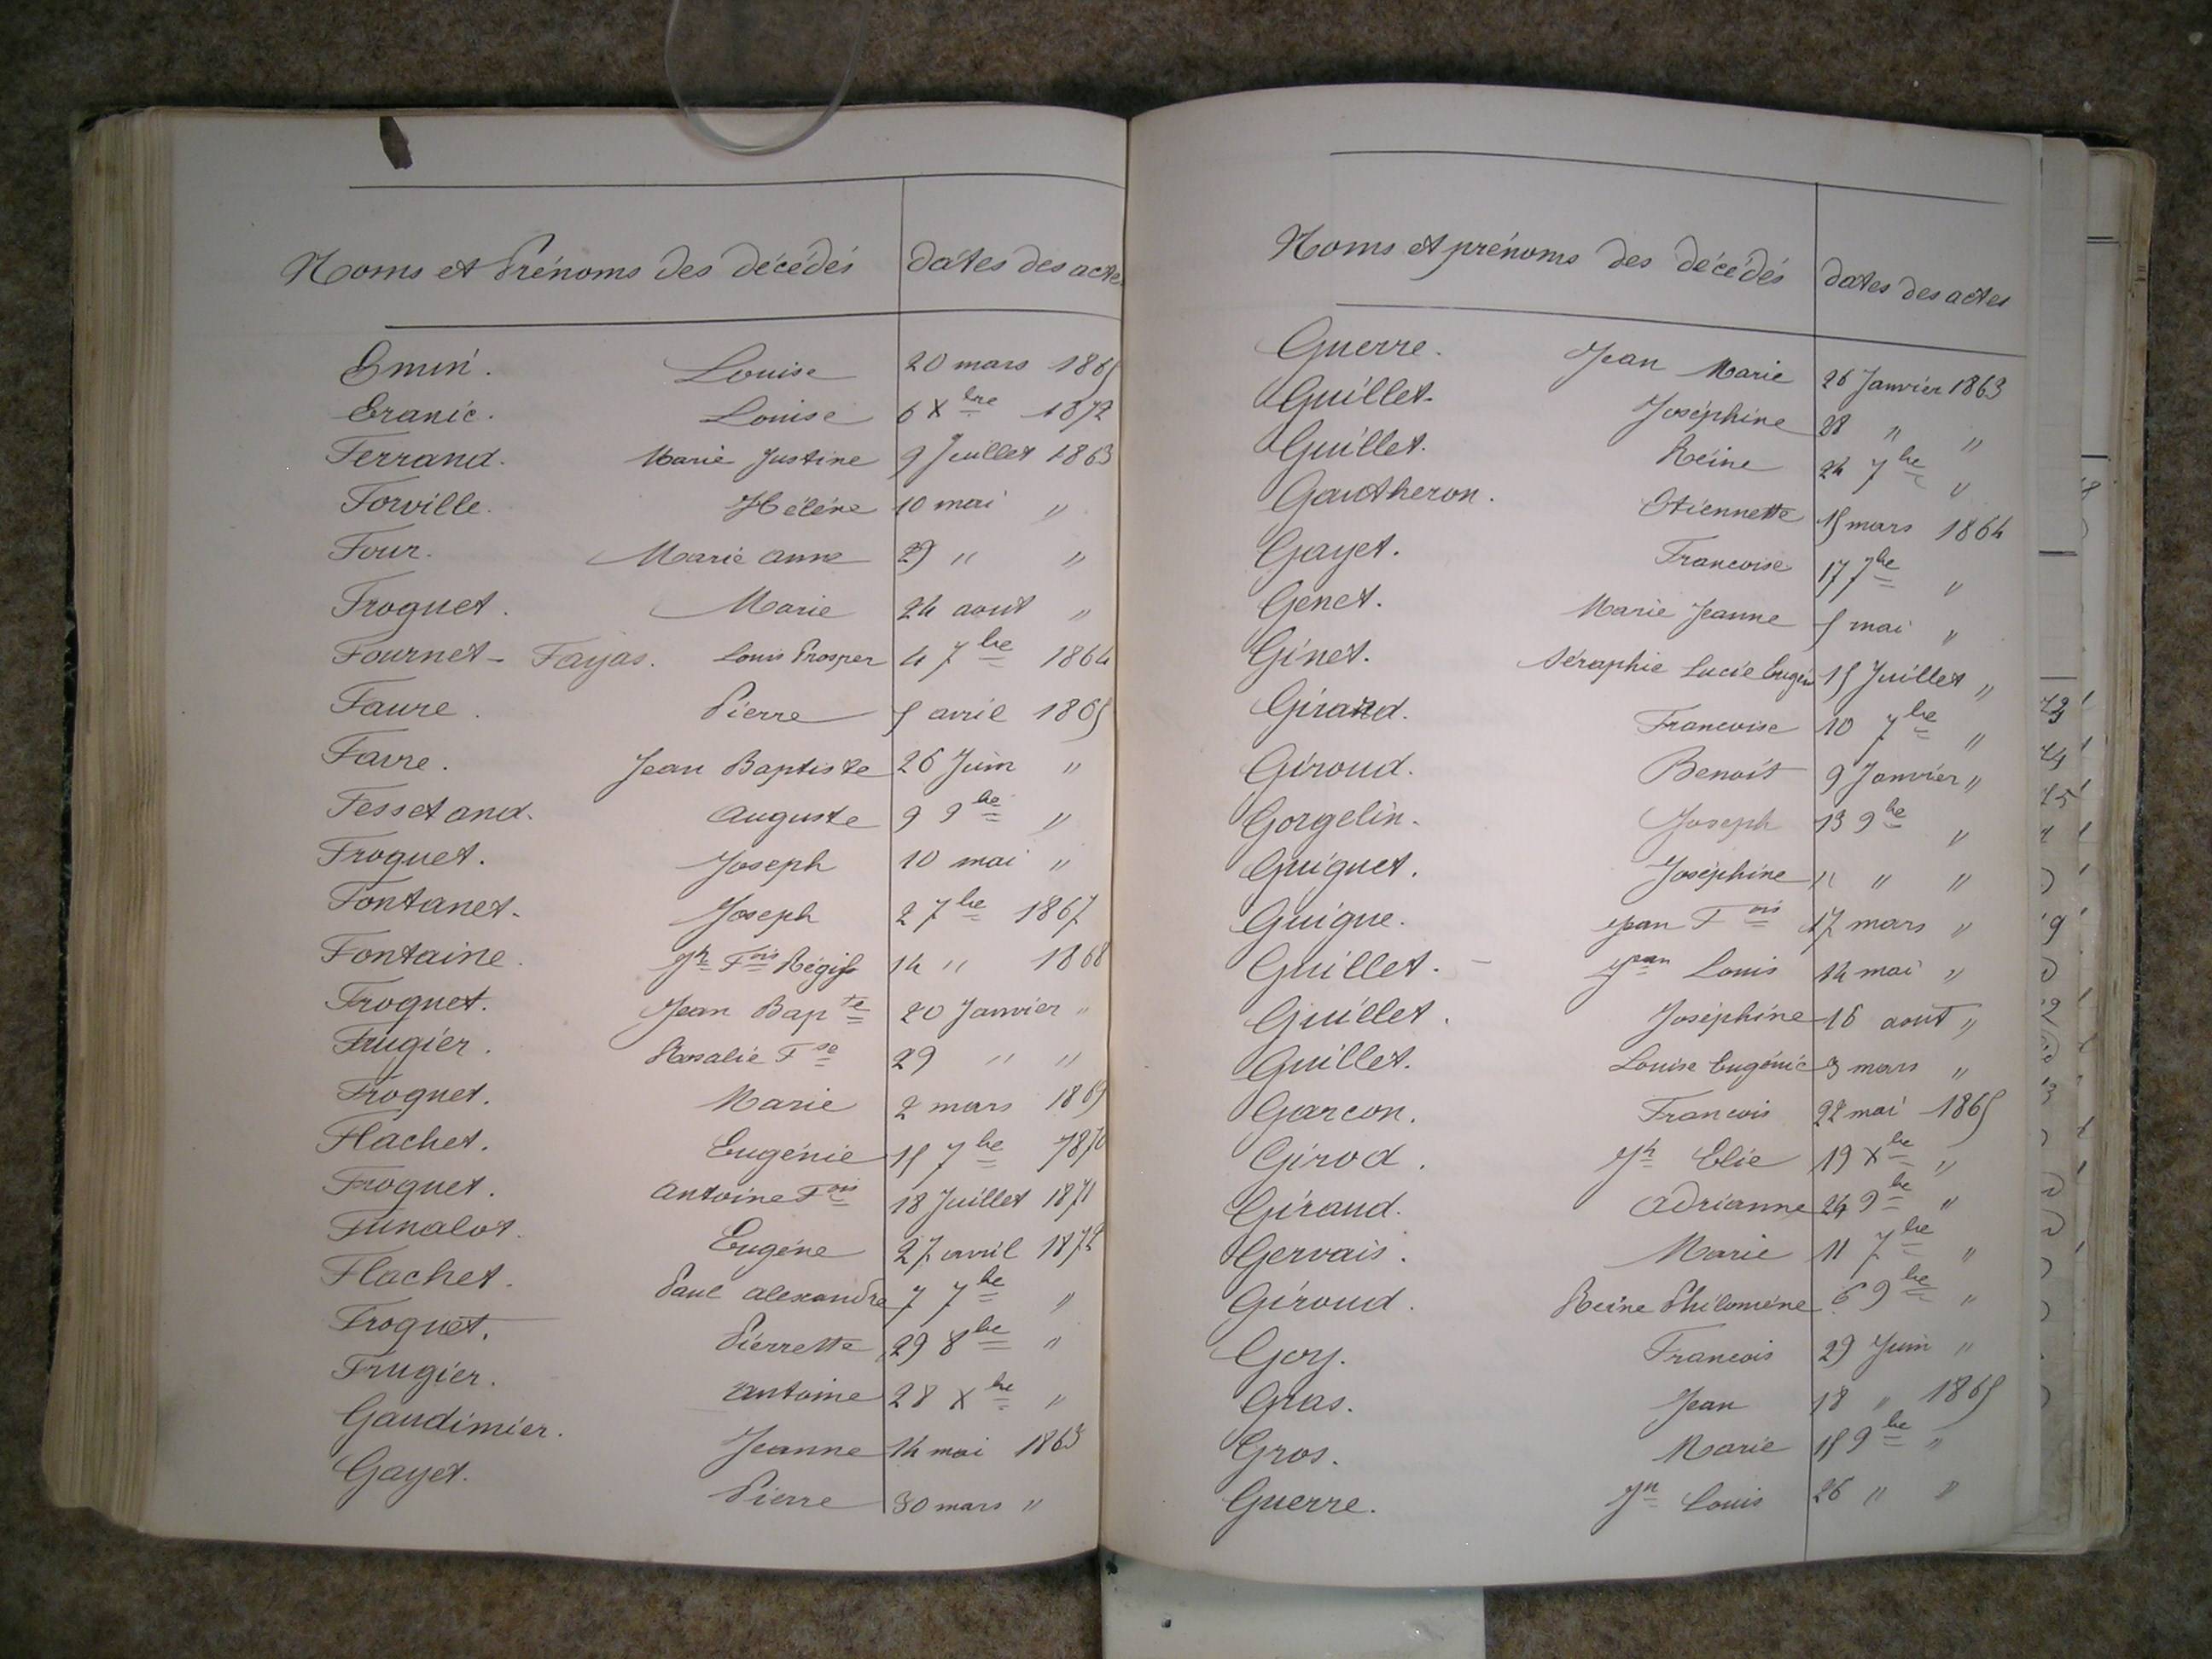 Noms et Prénoms des décédés dates des actes
Emin. Louise 20 mars 1865
Eranic. Louise 6 Xbre 1872
Ferrand. Marie Justine 9 Juillet 1863
Forville. Hélène 10 mai "
Four. Marie anne 29 " "
Froquet. Marie 24 aout "
Fournet-Fayas. Louis Prosper 4 7bre 1864
Faure. Pierre 5 avril 1865
Favre. Jean Baptiste 26 Juin "
Fessetand. Auguste 9 9bre "
Froquet. Joseph 10 mai "
Fontanet. Joseph 2 7bre 1867
Fontaine. Jh Fois Régis 14 " 1868
Froquet. Jean Bapte 20 Janvier "
Frugier. Rosalie Fse 29 " "
Froquet. Marie 2 mars 1869
Flachet. Eugénie 15 7bre 1870
Froquet. Antoine Fois 18 Juillet 1871
Funalot. Eugène 27 avril 1872
Flachet. Paul alexandre 7 7bre "
Froquet. Pierrette 29 8bre "
Frugier. Antoine 28 Xbre "
Gaudimier. Jeanne 14 mai 1863
Gayet. Pierre 30 mars "
Noms et prénoms des décédés dates des actes
Guerre. Jean Marie 26 Janvier 1863
Guillet. Joséphine 28 " "
Guillet. Reine 24 7bre "
Gautheron. Etiennette 15 mars 1864
Gayet. Francoise 17 7bre "
Genet. Marie Jeanne 5 mai "
Ginet. Séraphie Lucie Eugén 15 Juillet "
Girard. Francoise 10 7bre "
Giroud. Benoit 9 Janvier "
Gorgelin. Joseph 13 9bre "
Guiguet. Joséphine " " "
Guigue. Jean Fois 17 mars "
Guillet. Jean Louis 14 mai "
Guillet. Joséphine 16 aout "
Guillet. Louise Eugénie 3 mars "
Garcon. Francois 22 mai 1865
Girod. Jh Elie 19 Xbre "
Giraud. Adrianne 24 9bre "
Gervais. Marie 11 7bre "
Giroud. Reine Philomène 6 9bre "
Goy. Francois 29 Juin "
Gras. Jean 18 " 1865
Gros. Marie 15 9bre "
Guerre. Jn Louis 26 " "